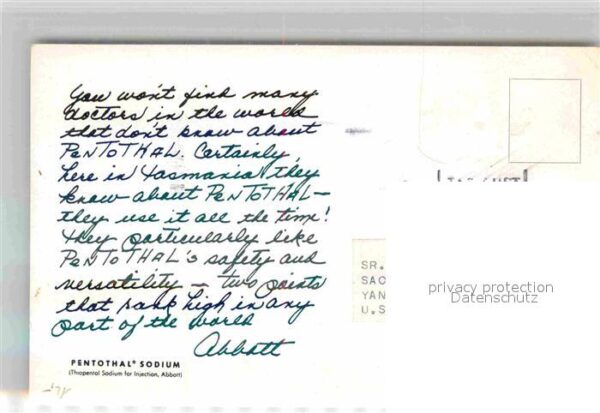 You won't find many
doctors in the world
that don't know about
PENTOTHAL. Certainly,
here in Tasmania they
know about PENTOTHAL—
they use it all the time!
They particularly like
PENTOTHAL's safety and
versatility — two points
that rank high in any
part of the world
Abbott
PENTOTHAL® SODIUM
(Thiopental Sodium for Injection, Abbott)
SR.
SAC
YAN
U.S
privacy protection
Datenschutz